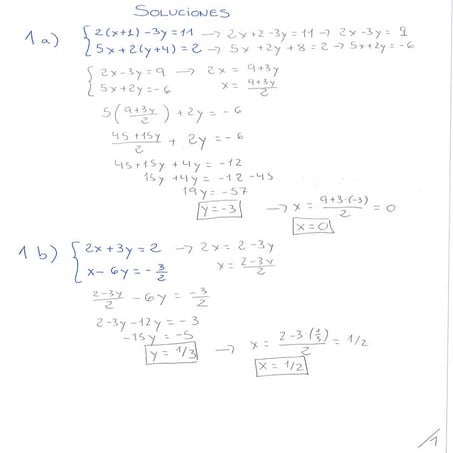 SOLUCIONES
1 a) { 2(x+1) - 3y = 11 → 2x + 2 - 3y = 11 → 2x - 3y = 9
5x + 2(y+4) = 2 → 5x + 2y + 8 = 2 → 5x + 2y = -6
{ 2x - 3y = 9 → 2x = 9 + 3y
5x + 2y = -6 x = (9+3y)/2
5((9+3y)/2) + 2y = -6
(45+15y)/2 + 2y = -6
45 + 15y + 4y = -12
15y + 4y = -12 - 45
19y = -57
y = -3 → x = (9+3·(-3))/2 = 0
x = 0
1 b) { 2x + 3y = 2 → 2x = 2 - 3y
x - 6y = -3/2 x = (2-3y)/2
(2-3y)/2 - 6y = -3/2
2 - 3y - 12y = -3
-15y = -5
y = 1/3 → x = (2-3·(1/3))/2 = 1/2
x = 1/2
/1